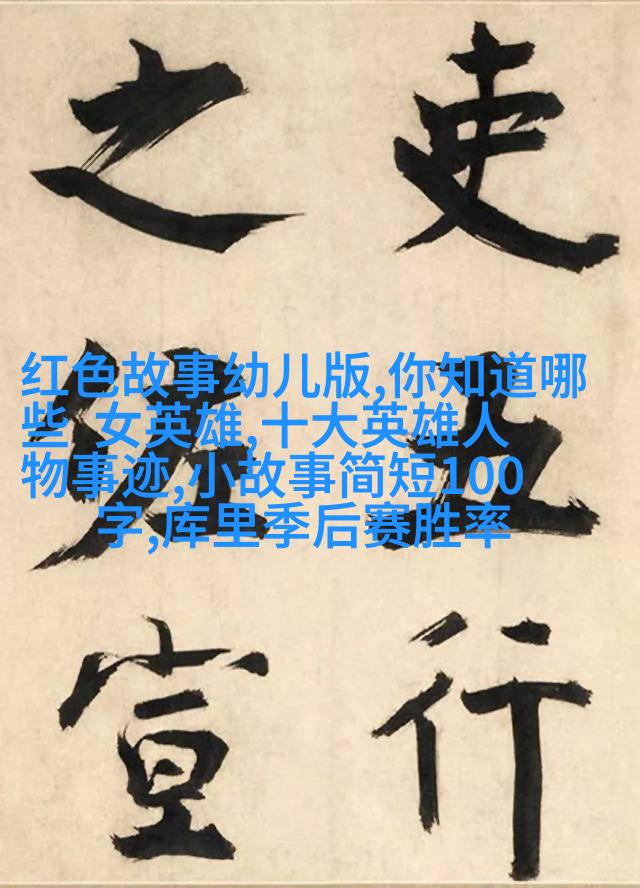 吏五行
之佐宣
红色故事幼儿版,你知道哪
些 女英雄,十大英雄人
物事迹,小故事简短100
字,库里季后赛胜率